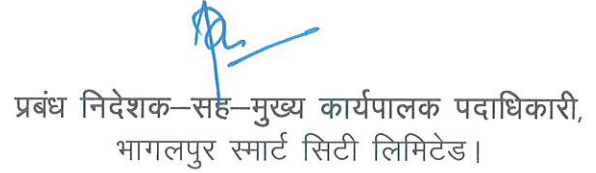 प्रबंध निदेशक–सह–मुख्य कार्यपालक पदाधिकारी,
भागलपुर स्मार्ट सिटी लिमिटेड।